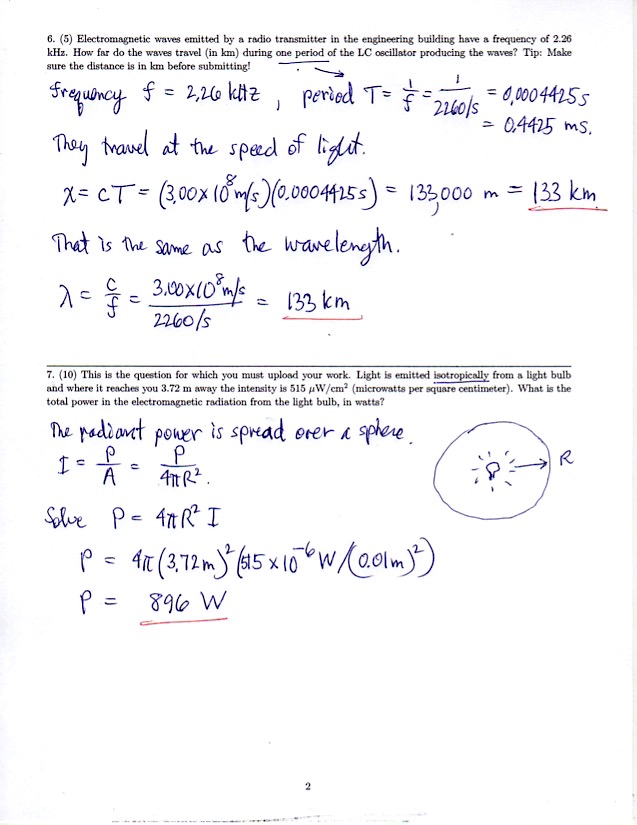 6. (5) Electromagnetic waves emitted by a radio transmitter in the engineering building have a frequency of 2.26
kHz. How far do the waves travel (in km) during one period of the LC oscillator producing the waves? Tip: Make
sure the distance is in km before submitting!
frequency f = 2.26 kHz , period T = 1/f = 1/2260/s = 0.0004425 s
= 0.4425 ms.
They travel at the speed of light.
x = cT = (3.00 x 10^8 m/s)(0.0004425 s) = 133,000 m = 133 km
That is the same as the wavelength.
λ = c/f = 3.00x10^8 m/s / 2260/s = 133 km
7. (10) This is the question for which you must upload your work. Light is emitted isotropically from a light bulb
and where it reaches you 3.72 m away the intensity is 515 μW/cm² (microwatts per square centimeter). What is the
total power in the electromagnetic radiation from the light bulb, in watts?
The radiant power is spread over a sphere.
I = P/A = P/4πR².
R
Solve P = 4πR² I
P = 4π(3.72 m)² (515 x 10^-6 W/(0.01m)²)
P = 896 W
2